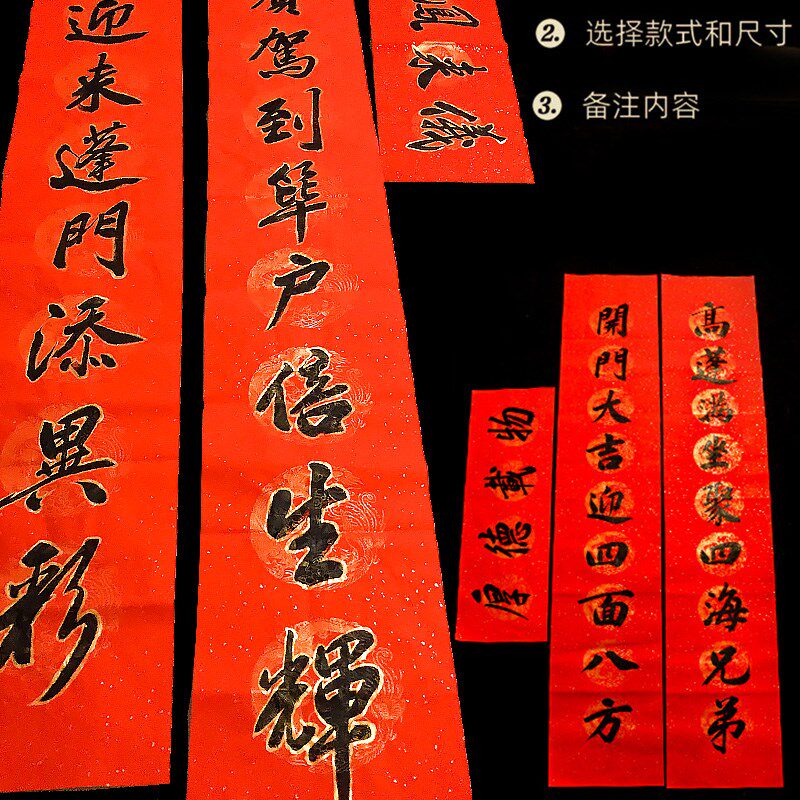 2. 选择款式和尺寸
3. 备注内容
迎来蓬門添異彩
駕到筚户倍生輝
来儀
高蓬满坐聚四海兄弟
開門大吉迎四面八方
厚德載物